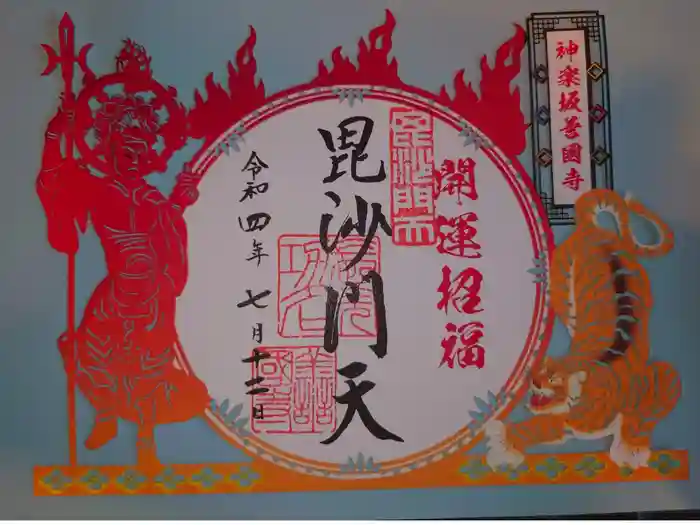 神楽坂善國寺
開運招福
毘沙門天
令和四年 七月十二日
毘沙門天